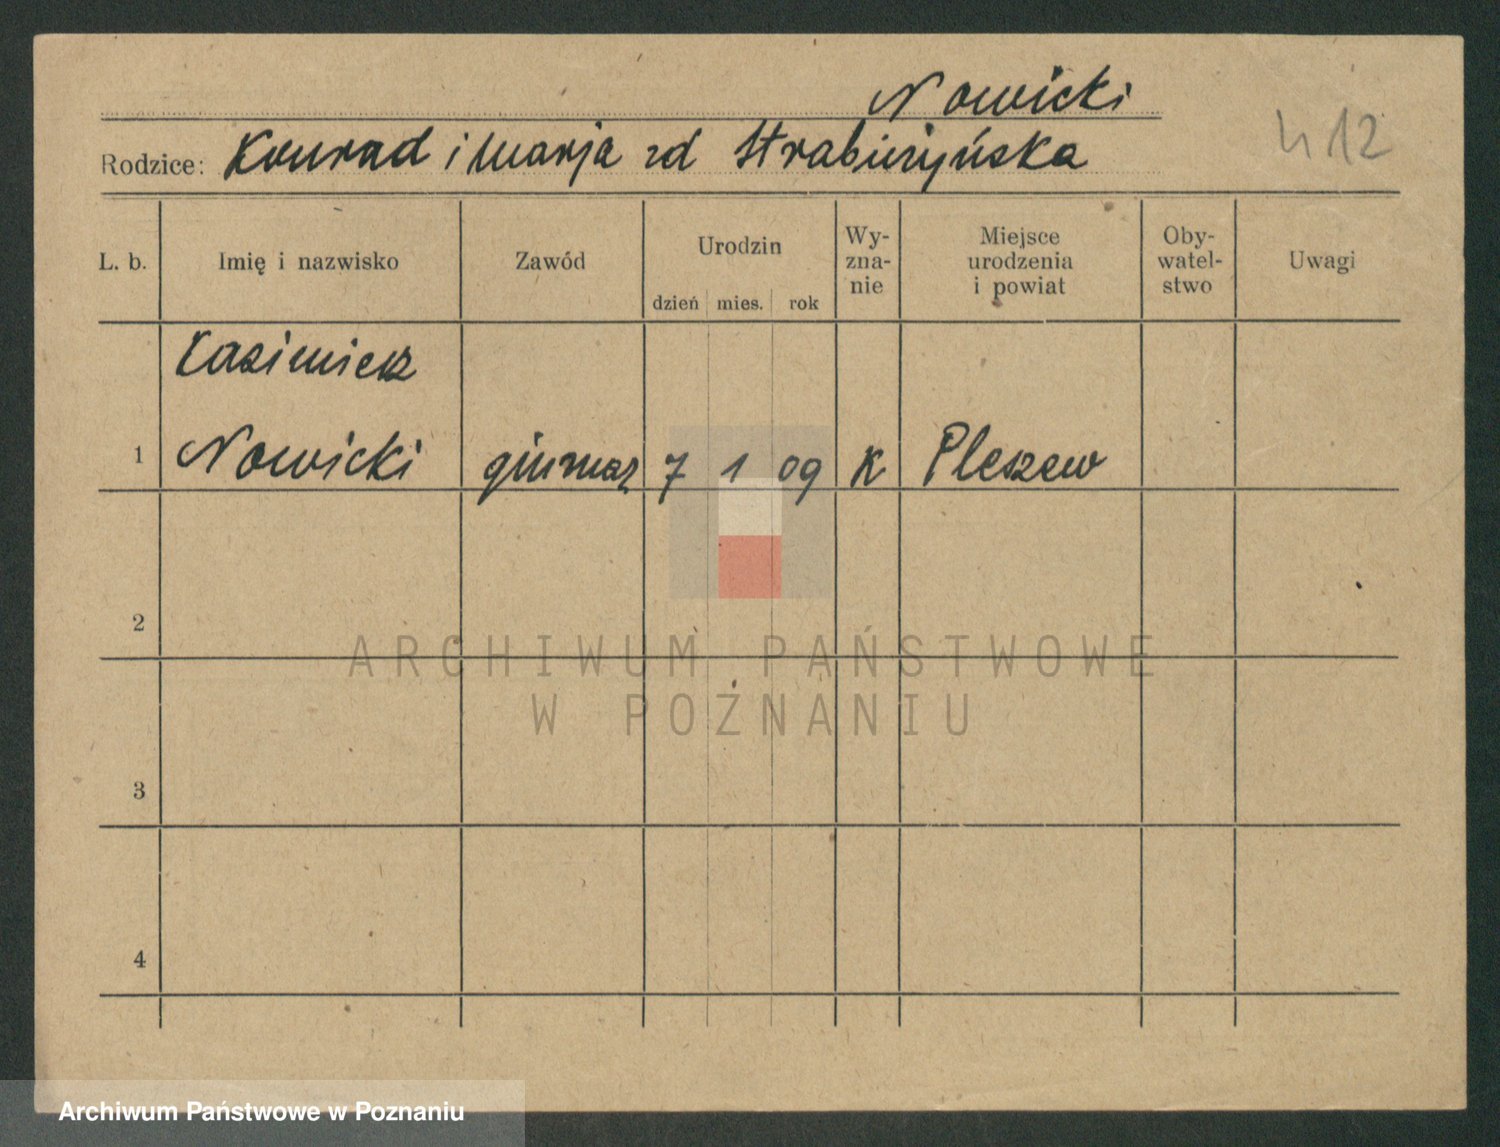 Nowicki
Rodzice: Konrad i Marja zd
412
L. b. Imię i nazwisko Zawód Urodzin dzień mies. rok Wy-
zna-
nie Miejsce
urodzenia
i powiat Oby-
watel-
stwo Uwagi
Kazimierz
1 Nowicki gimnaz 7 1 09 K Pleszew
2
3
4
ARCHIWUM PAŃSTWOWE
W POZNANIU
Archiwum Państwowe w Poznaniu